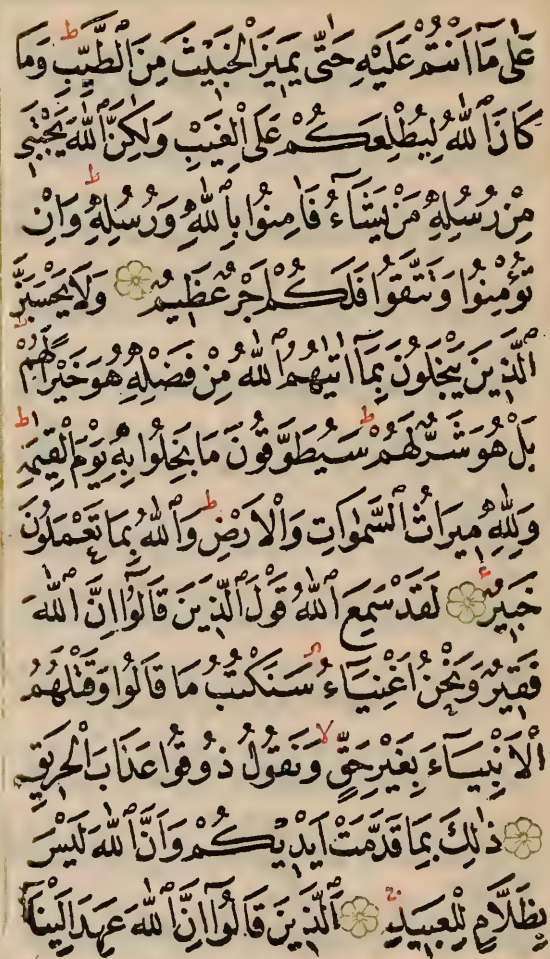 عَلٰى مَٓا اَنْتُمْ عَلَيْهِ حَتّٰى يَمِيزَ الْخَبِيثَ مِنَ الطَّيِّبِ ط وَمَا
كَانَ اللّٰهُ لِيُطْلِعَكُمْ عَلَى الْغَيْبِ وَلٰكِنَّ اللّٰهَ يَجْتَبِى
مِنْ رُسُلِهٖ مَنْ يَشَٓاءُ فَاٰمِنُوا بِاللّٰهِ وَرُسُلِهٖ ط وَاِنْ
تُؤْمِنُوا وَتَتَّقُوا فَلَكُمْ اَجْرٌ عَظِيمٌ وَلَا يَحْسَبَنَّ
الَّذِينَ يَبْخَلُونَ بِمَٓا اٰتٰيهُمُ اللّٰهُ مِنْ فَضْلِهٖ هُوَ خَيْرًا لَهُمْ ط
بَلْ هُوَ شَرٌّ لَهُمْ ط سَيُطَوَّقُونَ مَا بَخِلُوا بِهٖ يَوْمَ الْقِيٰمَةِ ط
وَلِلّٰهِ مِيرَاثُ السَّمٰوَاتِ وَالْاَرْضِ ط وَاللّٰهُ بِمَا تَعْمَلُونَ
خَبِيرٌ ع لَقَدْ سَمِعَ اللّٰهُ قَوْلَ الَّذِينَ قَالُٓوا اِنَّ اللّٰهَ
فَقِيرٌ وَنَحْنُ اَغْنِيَٓاءُ سَنَكْتُبُ مَا قَالُوا وَقَتْلَهُمُ
الْاَنْبِيَٓاءَ بِغَيْرِ حَقٍّ لا وَنَقُولُ ذُوقُوا عَذَابَ الْحَرِيقِ
ذٰلِكَ بِمَا قَدَّمَتْ اَيْدِيكُمْ وَاَنَّ اللّٰهَ لَيْسَ
بِظَلَّامٍ لِلْعَبِيدِ ج اَلَّذِينَ قَالُٓوا اِنَّ اللّٰهَ عَهِدَ اِلَيْنَٓا